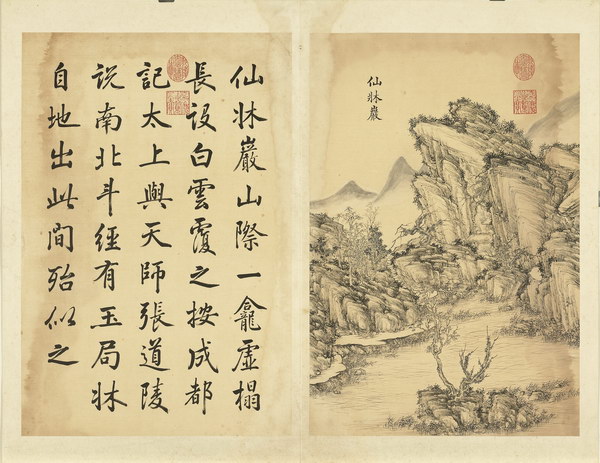 仙牀巖
仙牀巖山際一龕虛榻
長設白雲覆之按成都
記太上與天師張道陵
説南北斗經有玉局牀
自地出此間殆似之